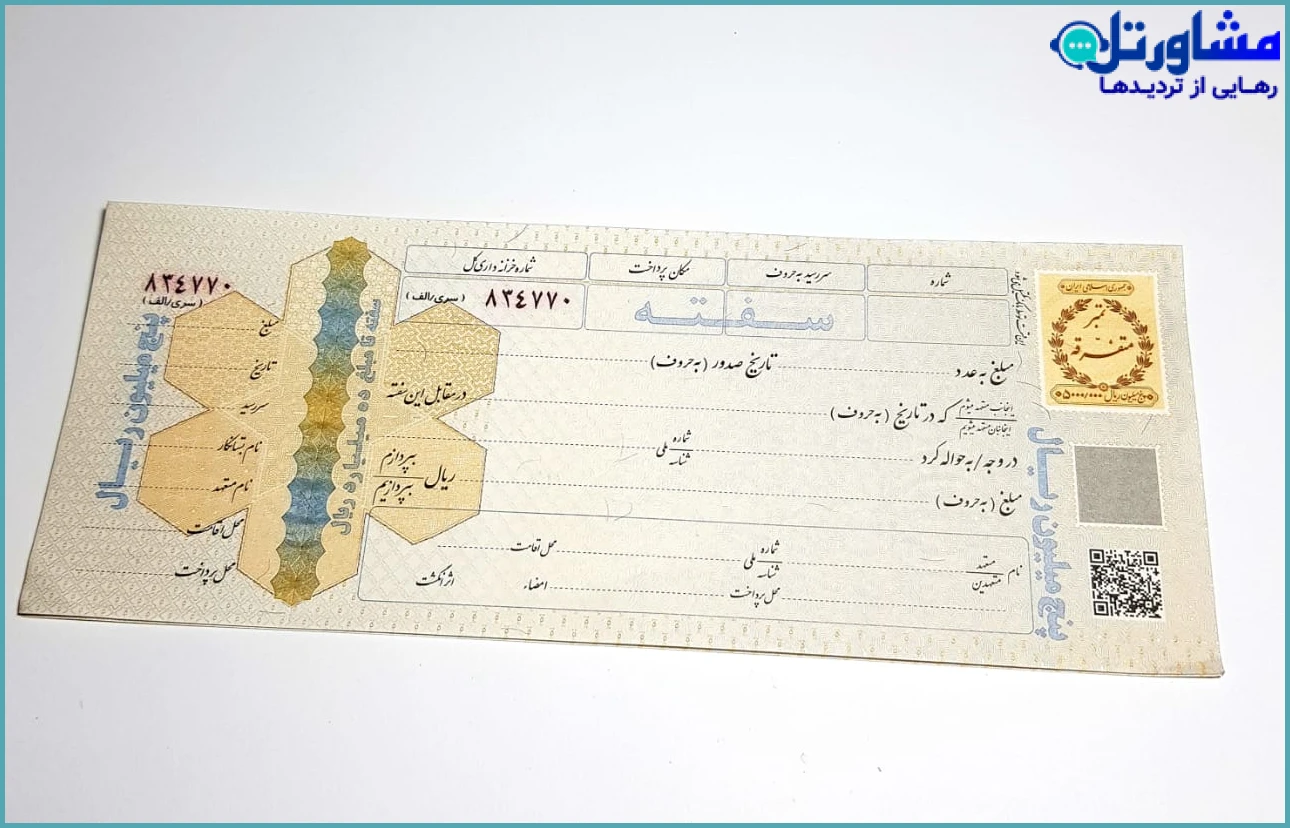 مشاورتل
رهایی از تردیدها
شماره
سررسید به حروف
مکان پرداخت
شماره خزانه داری کل
سفته
۸۳٤۷۷۰
(سری/الف)
جمهوری اسلامی ایران
تمبر
متفرقه
پنج میلیون ریال ۵۰۰۰/۰۰۰
مبلغ به عدد
تاریخ صدور (به حروف)
اینجانب متعهد میشوم
اینجانبان متعهد میشویم
که در تاریخ (به حروف)
در مقابل این سفته
در وجه / به حواله کرد
شماره ملی
شناسه
مبلغ (به حروف)
ریال
بپردازم
بپردازیم
نام
متعهد
متعهدین
شماره ملی
شناسه
محل اقامت
محل پرداخت
امضاء
اثر انگشت
پنج میلیون ریال
سفته تا مبلغ ده میلیارد ریال
۸۳٤۷۷۰
(سری/الف)
مبلغ
تاریخ
سررسید
نام بستانکار
نام متعهد
محل اقامت
محل پرداخت
پنج میلیون ریال